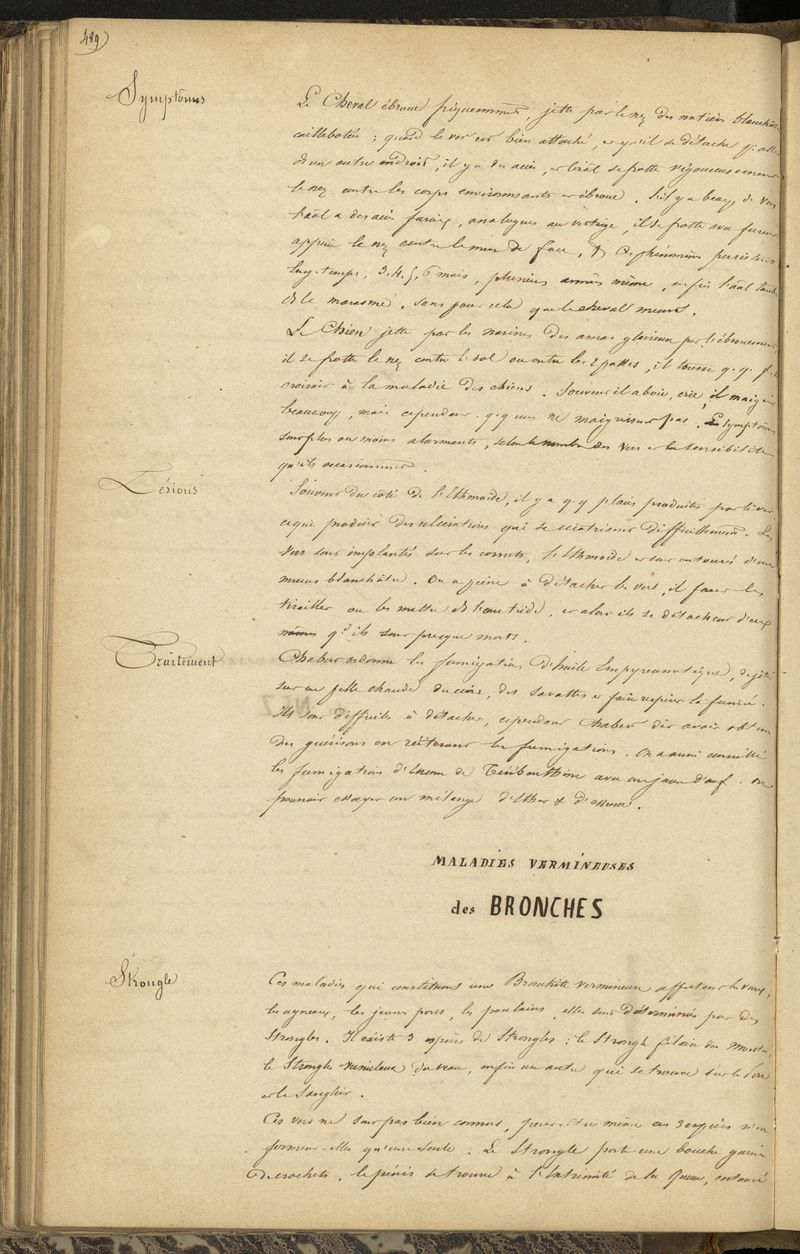 489
Symptômes
Le Cheval ébroue fréquemment, jette par le nez des matières blanchâtres
caillebotées ; quand le ver est bien attaché, et qu'il se détache p. aller
ds un autre endroit, il y a des accès, et l'anal se frotte vigoureusement
le nez contre les corps environnants et ébroue. S'il y a beaucp de vers
l'anal a des accès furieux, analogues au vertige, il se frotte avec fureur
appuie le nez contre le mur de face, & Ces phénomènes persistent
longtemps, 3.4.5, 6 mois, plusieurs années même, enfin l'anal tombe
ds le marasme, sans pour cela que le cheval meure.
Le Chien jette par les narines des amas glaireux par l'ébrouement,
il se frotte le nez contre le sol ou entre les 2 pattes, il tousse q.q.f.
croirait à la maladie des chiens. Souvent il aboie, crie, il maigrit
beaucoup, mais cependant q.q uns ne maigrissent pas. Les symptômes
sont plus ou moins alarmants, selon le nombre des vers et la sensibilité
qu'ils occasionnent.
Lésions
Souvent du côté de l'Ethmoïde, il y a q.q plaies produites par le ver,
ce qui produit des ulcérations qui se cicatrisent difficilement. Les
vers sont implantés sur les cornets, l'ethmoïde et sont entourés d'un
mucus blanchâtre. On a peine à détacher les vers, il faut les
tirailler ou les mettre ds l'eau tiède, et alors ils se détachent d'eux
mêmes qd ils sont presque morts.
Traitement
Chabert ordonne les fumigations d'huile Empyreumatique,
sur une pelle chaude du cuir, des savattes et faire respirer la fumée.
Ils sont difficiles à détacher, cependant Chabert dit avoir obtenu
des guérisons en réitérant les fumigations. On a aussi conseillé
les fumigations d'Essence de Térébenthine avec un jaune d'œuf. On
pourrait essayer un mélange d'Ether & d'essence.
MALADIES VERMINEUSES
des BRONCHES
Strongle
Ces maladies qui constituent une Bronchite vermineuse affectent les veaux,
les agneaux, les jeunes porcs, les poulains, elles sont déterminées par des
Strongles. Il existe 3 espèces de Strongles : le Strongle filaire du Mouton,
le Strongle du veau, enfin un autre qui se trouve sur le Porc
et le Sanglier.
Ces vers ne sont pas bien connus, peut-être même ces 3 espèces n'en
forment-elles qu'une seule. Le Strongle porte une bouche garnie
de crochets, le pénis se trouve à l'Extrémité de la Queue, entouré